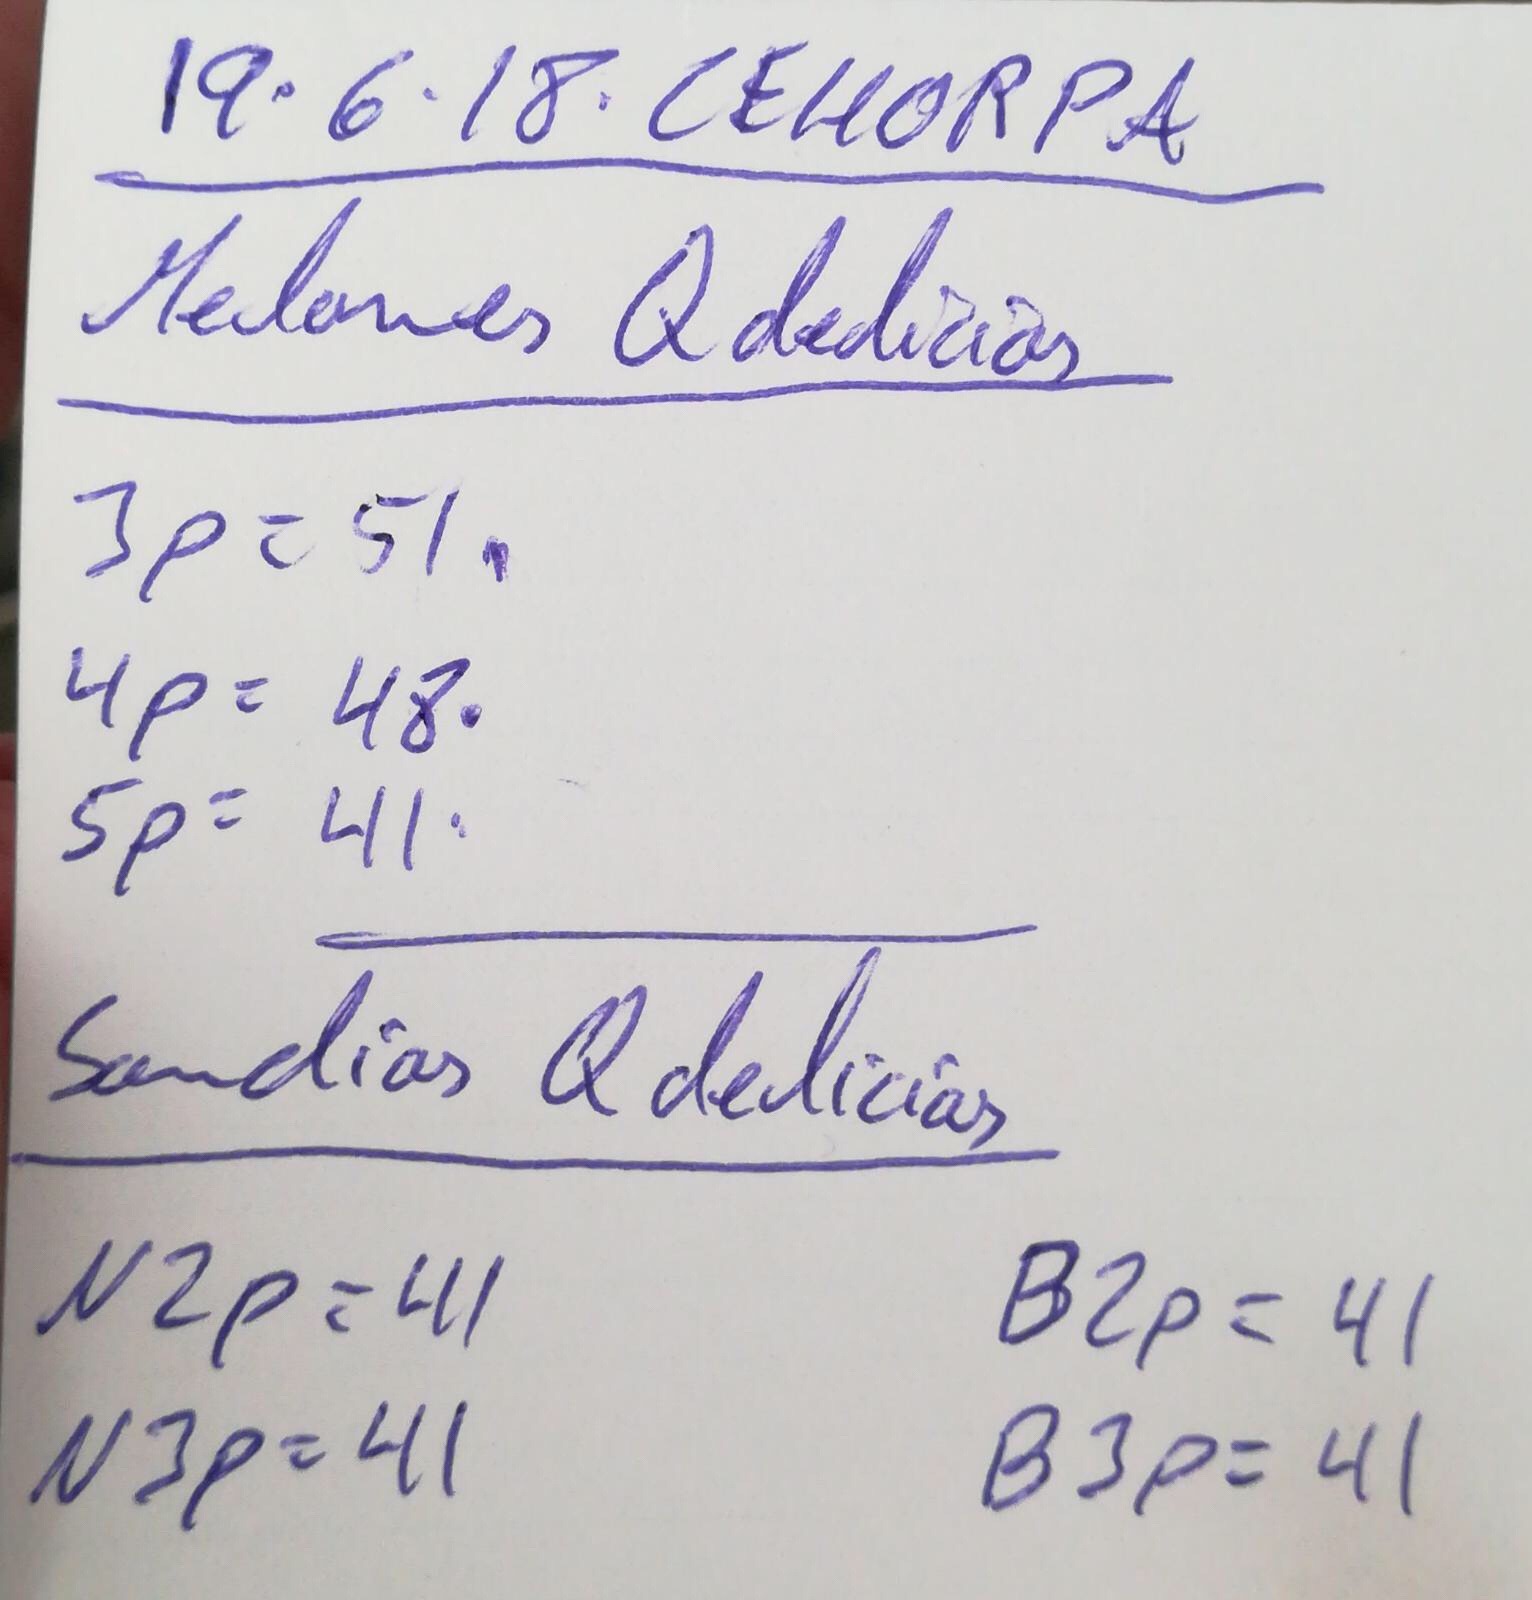 19.6.18. CEHORPA
Melones Q delicias
3p = 51.
4p = 48.
5p = 41.
Sandias Q delicias
N2p = 41 B2p = 41
N3p = 41 B3p = 41